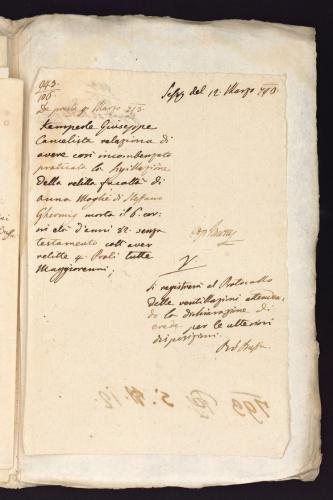 943
106
Sess del 12. Marzo 813.
De pres: 9 Marzo 813
Kemperle Giuseppe
Cancelista relaziona di
avere così incombenzato
praticato la Sigillazione
della relitta facoltà di
Anna Moglie di Steffano
Ghermig morta il 6. cor:
in età d'anni 82. senza
testamento coll aver
relitte 4 Proli tutte
Maggiorenni;
Si registreri al Protocollo
delle ventillazioni attenden-
do la dichiarazione di
erede per le ulteriori
disposizioni.